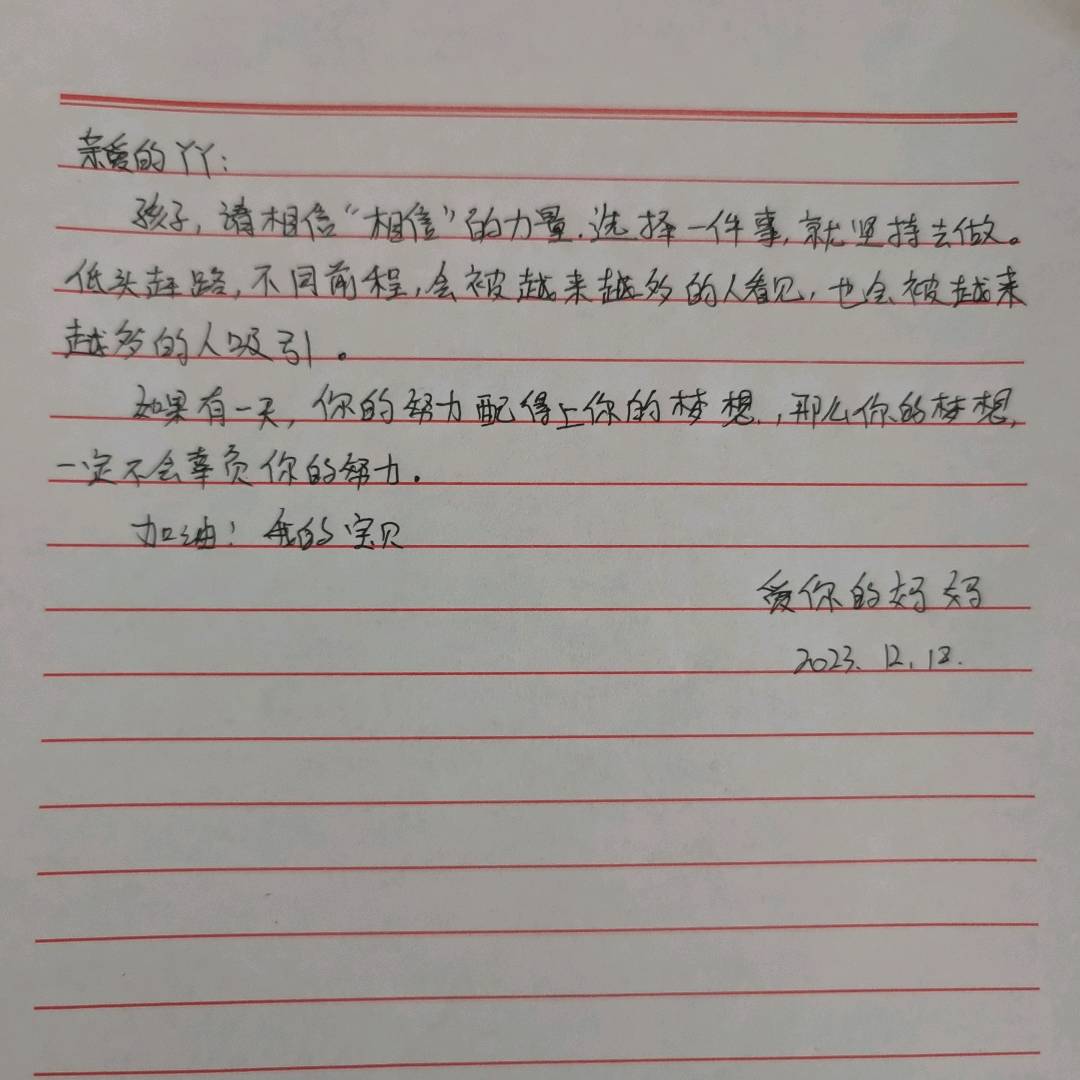 亲爱的丫丫:
孩子,请相信“相信”的力量.选择一件事,就坚持去做。
低头赶路,不问前程,会被越来越多的人看见,也会被越来
越多的人吸引。
如果有一天,你的努力配得上你的梦想.,那么你的梦想,
一定不会辜负你的努力.
加油!我的宝贝
爱你的妈妈
2023.12.18.